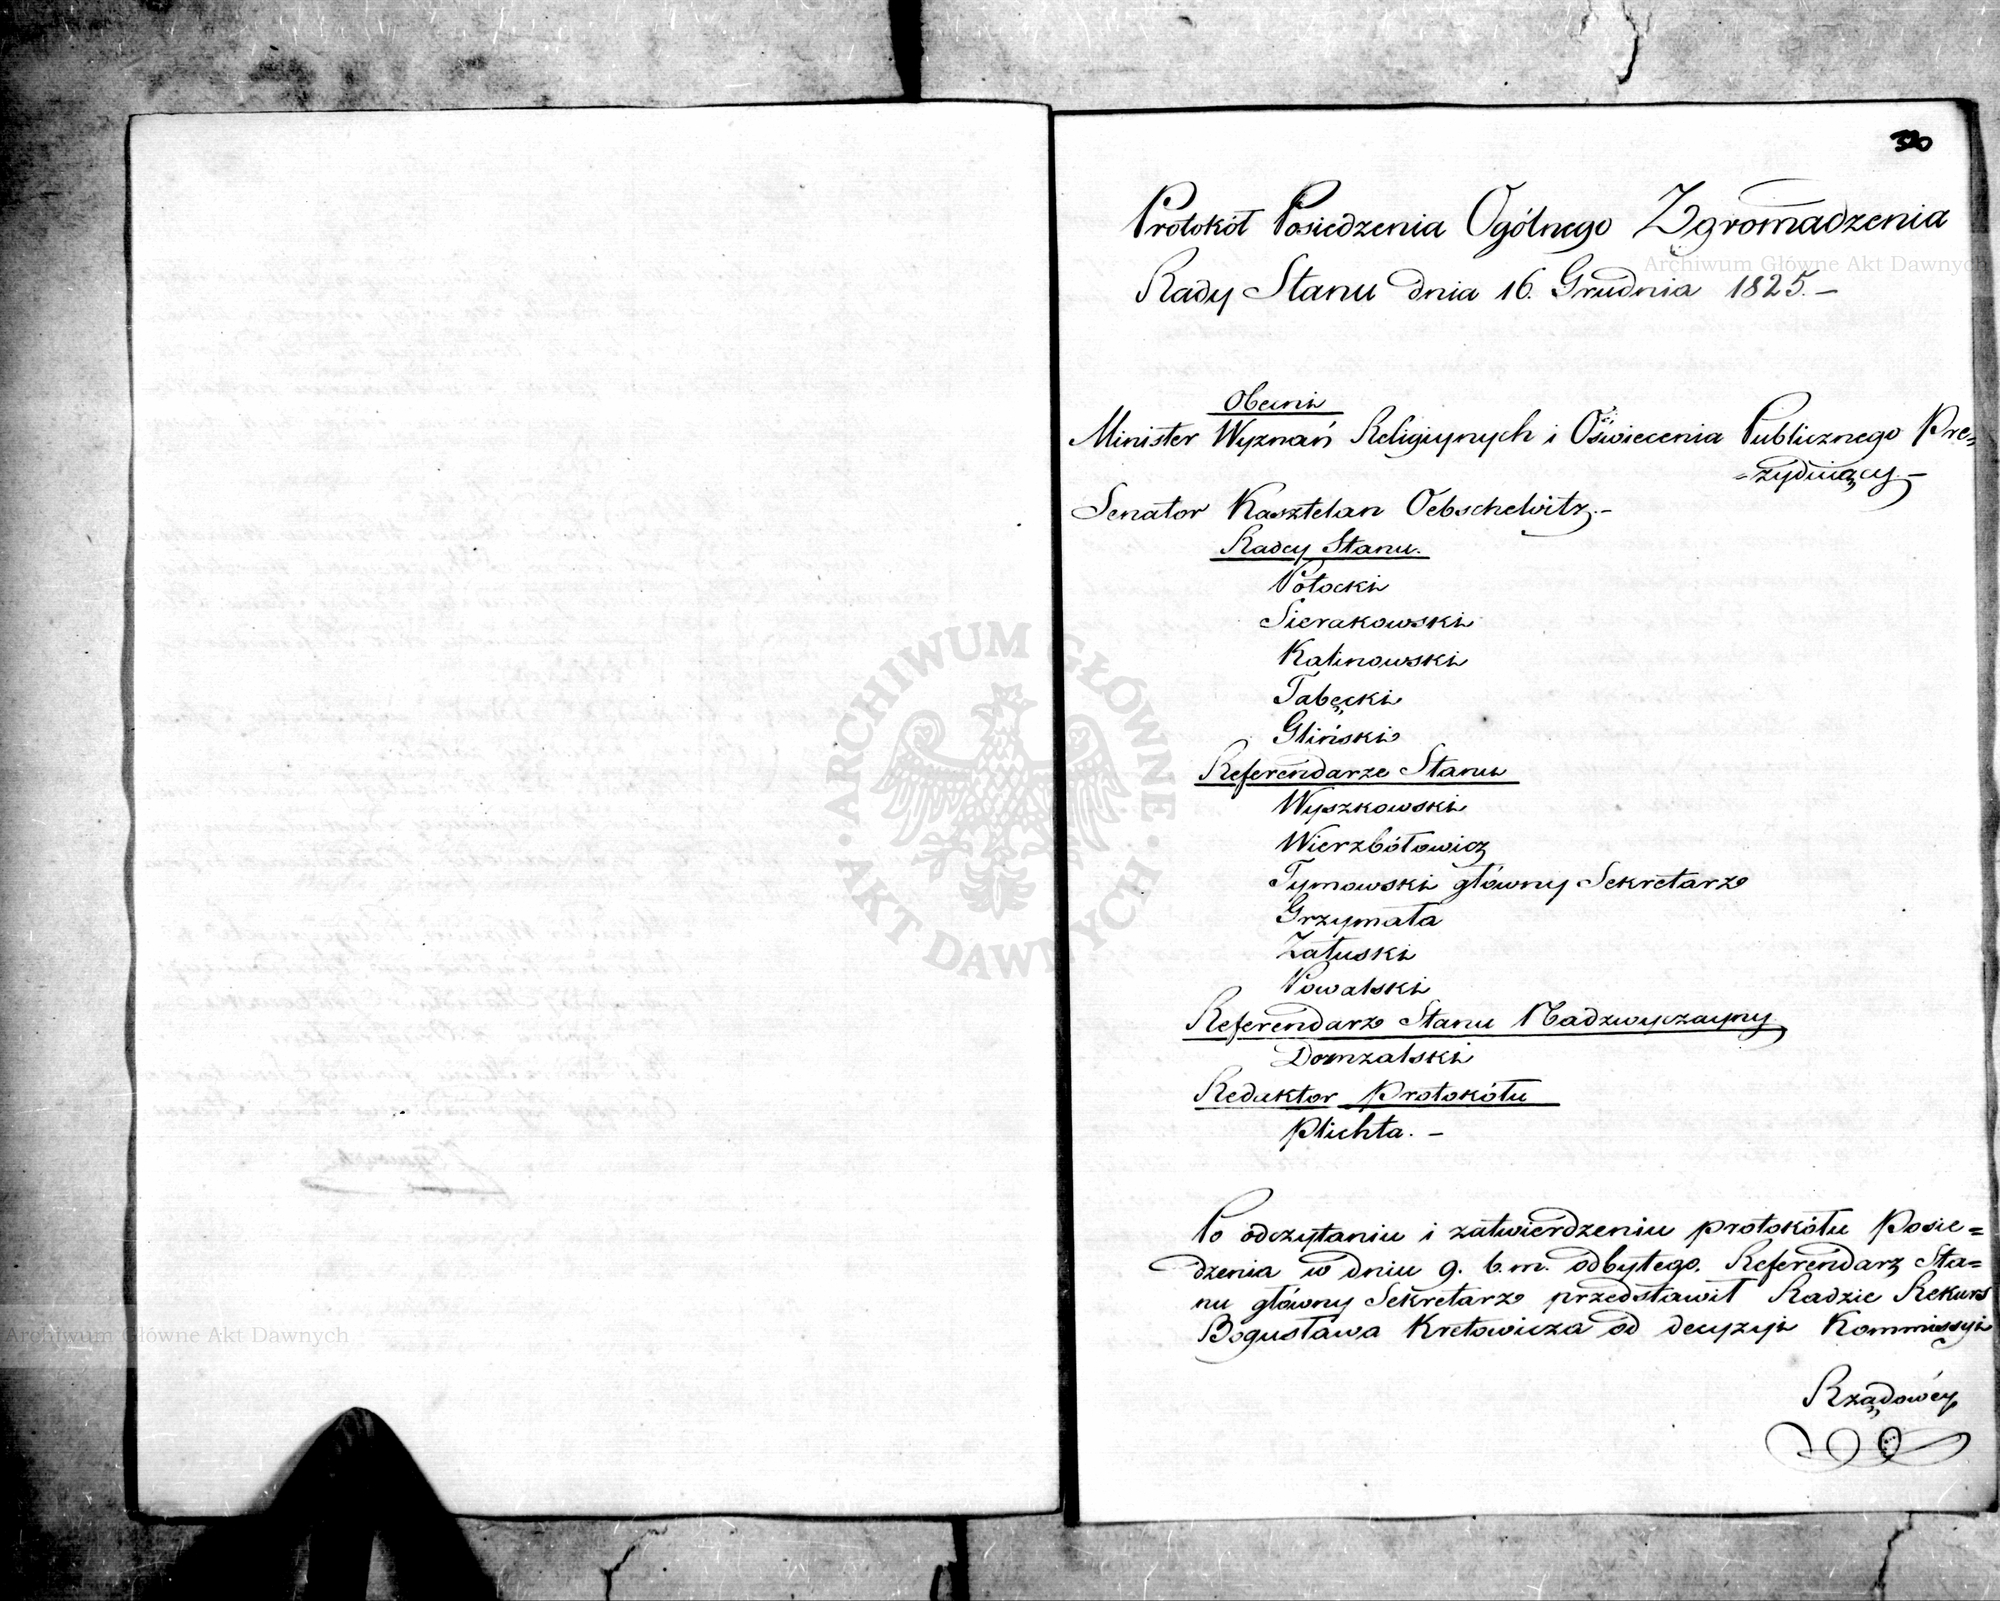 320
Protokół Posiedzenia Ogólnego Zgromadzenia
Rady Stanu dnia 16. Grudnia 1825.–
Obecni
Minister Wyznań Religiynych i Oświecenia Publicznego Pre=
=zyduiący.–
Senator Kasztelan Oebschelwitz.–
Radcy Stanu.
Potocki
Sierakowski
Kalinowski
Tabęcki
Gliński
Referendarze Stanu
Wyszkowski
Wierzbółowicz
Tymowski główny Sekretarz
Grzymała
Załuski
Powalski
Referendarz Stanu Nadzwyczayny
Domzalski
Redaktor Protokółu
Plichta. –
Po odczytaniu i zatwierdzeniu protokółu Posie=
dzenia w dniu 9. b.m. odbytego, Referendarz Sta=
nu główny Sekretarz przedstawił Radzie Rekurs
Bogusława Kretowicza od decyzyi Kommissyi
Rządowéy
Archiwum Główne Akt Dawnych
ARCHIWUM GŁÓWNE AKT DAWNYCH
Archiwum Główne Akt Dawnych